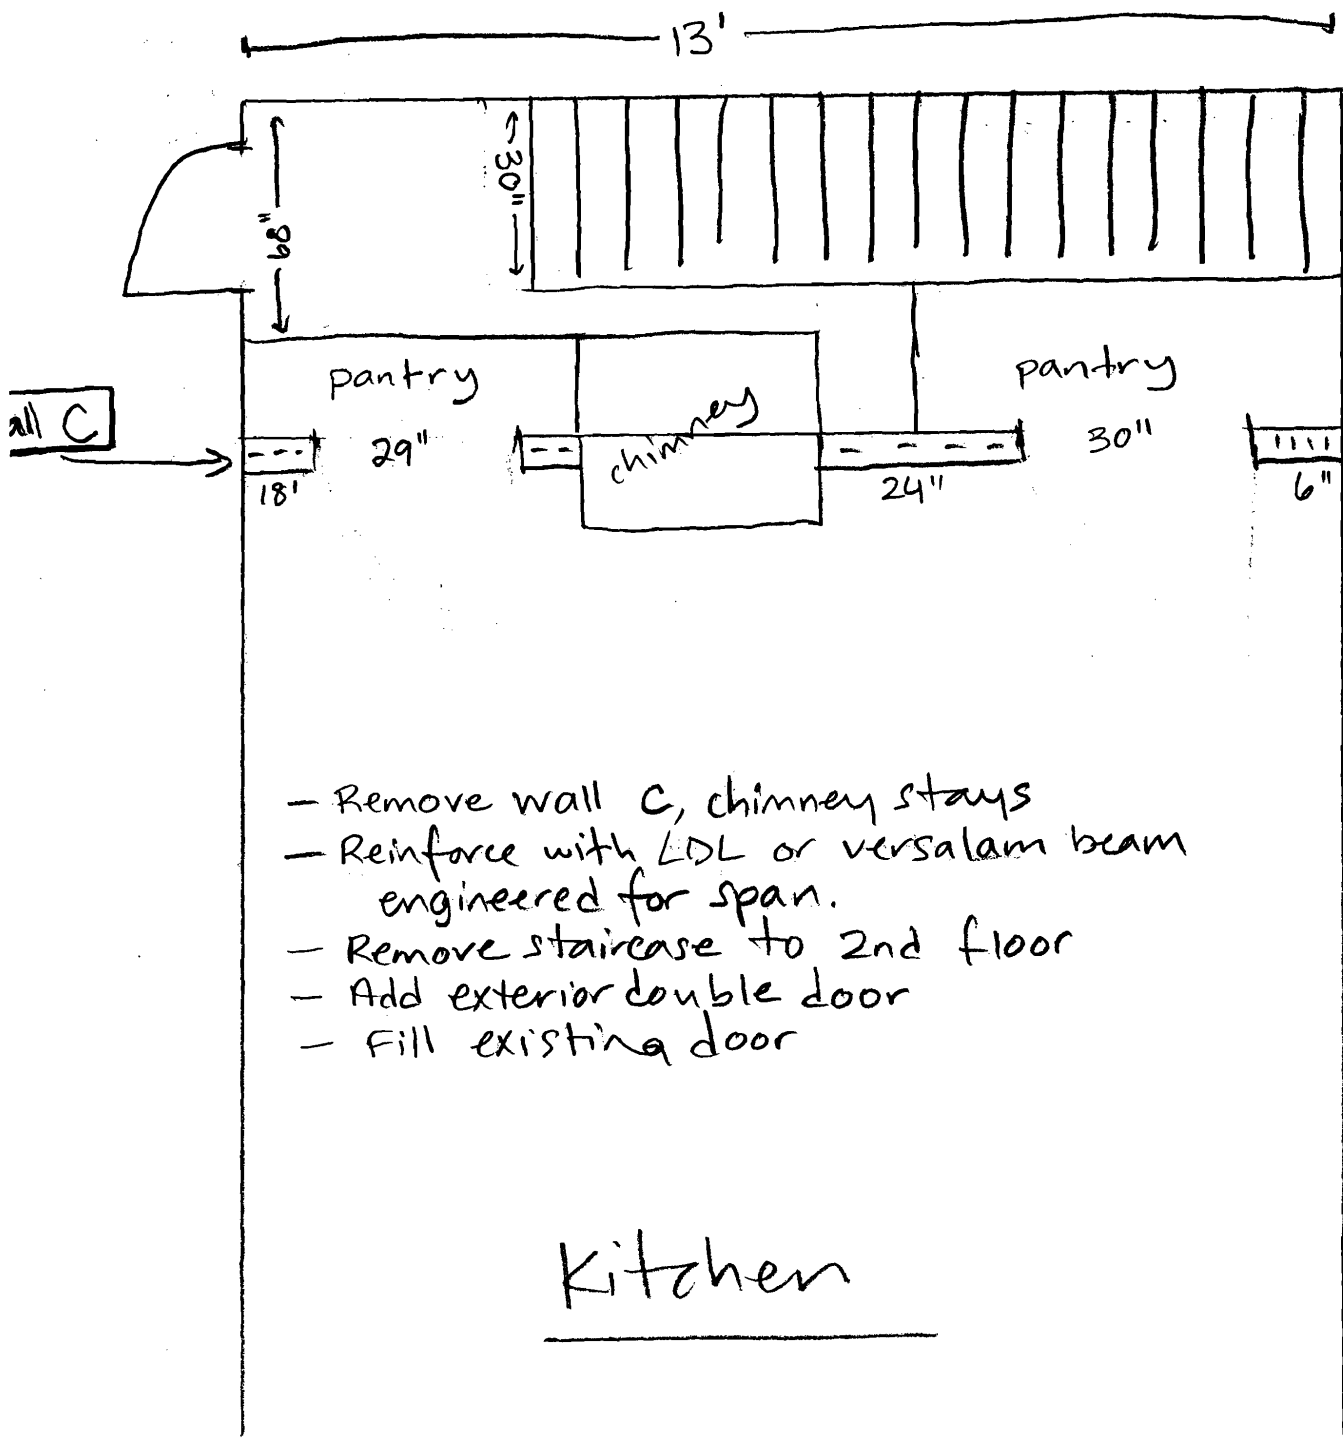 13'
30"
68"
pantry
pantry
all C
29"
chimney
30"
18'
24"
6"
- Remove wall C, chimney stays
- Reinforce with LDL or versalam beam
engineered for span.
- Remove staircase to 2nd floor
- Add exterior double door
- Fill existing door
Kitchen